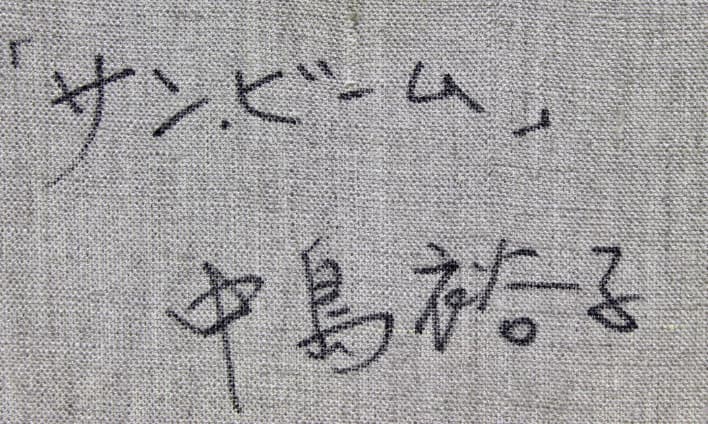 「サン.ビーム」
中島裕子